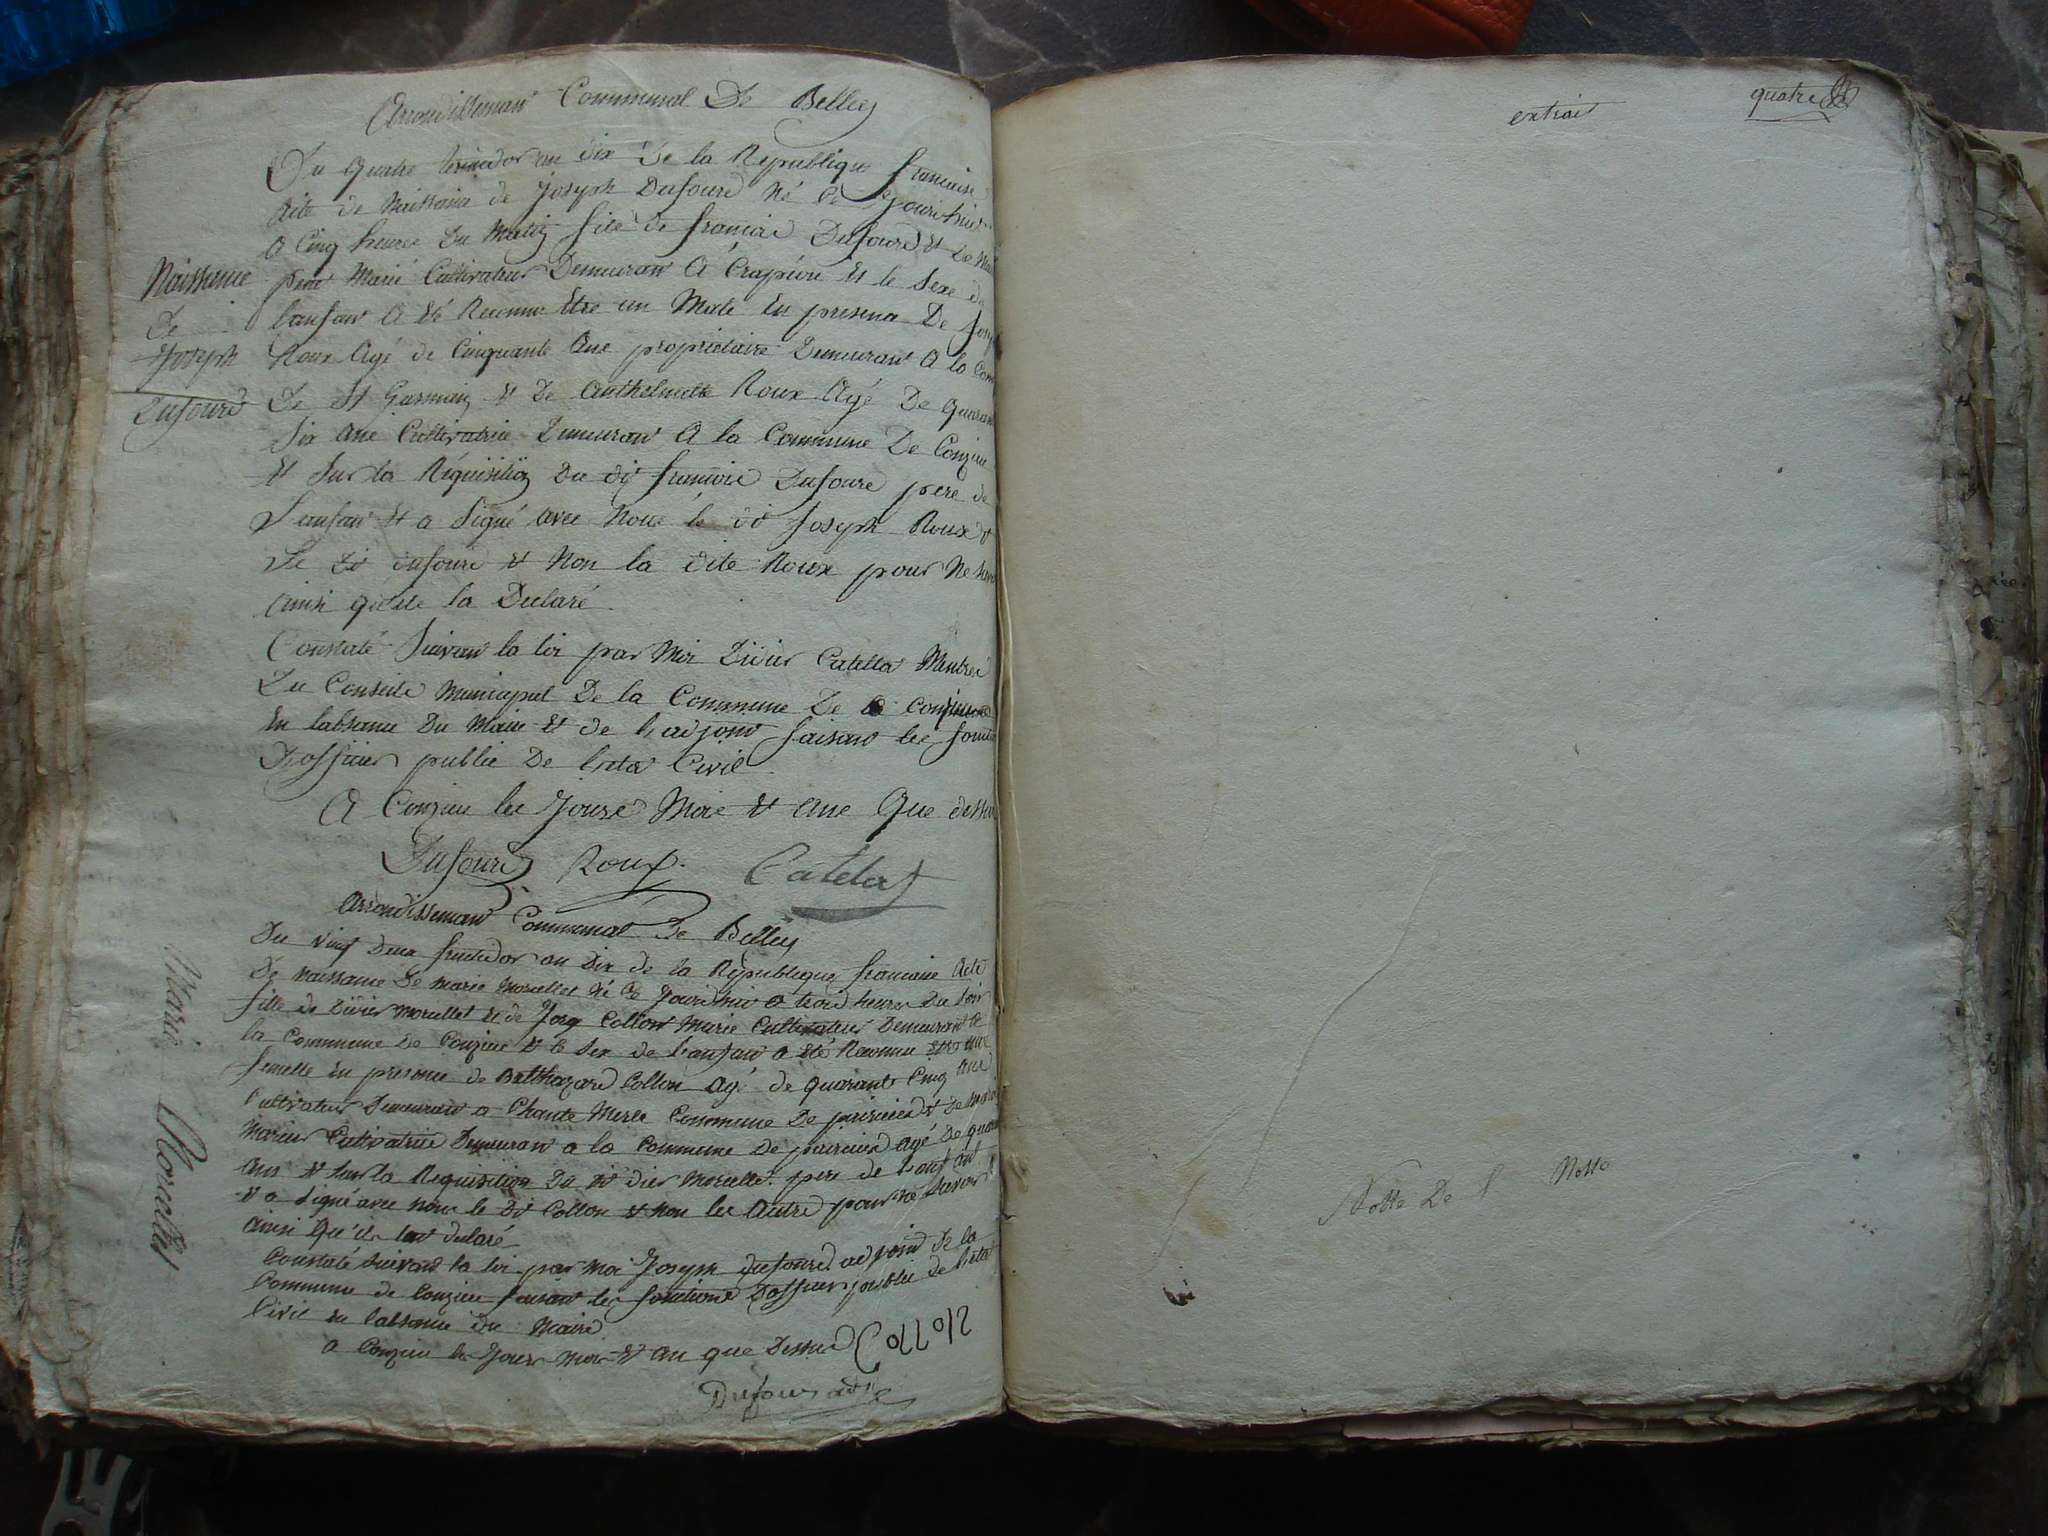 Arrondissemant Communal De Belley
Du quatre an dix De la Republique francaise
Acte de Naissance de Joseph Dufourd Né Ce jourdhui
a Cinq heures Du Matin fils de francois Dufourd et De
Marié Cultivateur Demeurant A Crapéou et le sexe de
lanfant A été Reconnu Etre un Male En presence De Josep
Roux Agé de Cinquante Ans propriétaire Demeurant A la Com
De St Germain et De Anthelmette Roux Agé De quarant
Six Ans Cultivatrice Demeurant A la Commune De Conzieu
et Sur la Réquisition Du dit francois Dufours pere de
Lanfant et a Signé avec Nous le dit Joseph Roux et
Le dit dufours et Non la dite Roux pour Ne
Ainsi quelle la Déclaré
Constaté Suivant la loi par Moi Didier Catella Menbres
Du Conseile Municipal De la Commune De Conzieu
En labsance Du Maire et de Ladjoint faisant les
Dofficier public De letat Civil
A Conzieu les Jours Mois et Ans Que dessus
Naissance
De
Joseph
Dufourd
Dufourd Roux Catela
Arrondissemant Communal De Belley
Du vingt Deux fructidor an Dix de la République francaise Acte
De naissance De marie Morellet Né Ce Jourdhui a trois heures Du Soir
fille de Didier morellet et de Collon Marié Cultivateur Demeurant a
la Commune De Conzieu et le Sex de lanfant a été Reconnu etre une
femelle En presence de Balthazard Collon agé de quarante Cinq Ans
Cultivateur Demeurant a Chante Merle Commune De et De
Cultivatrice Demeurant a la Commune De agé De
ans et Sur la Requisition Du dit didier Morellet pere de Lanfant
et a Signé avec nous le dit Collon et Non les Autre pour ne Savoir
Ainsi Qu'ils lont déclaré
Constaté Suivant la loi par Moi Joseph dufourd adjoint De la
Commune de Conzieu faisant les fonctions Dofficier publie de letat
Civil En labsance du Maire
a Conzieu les Jours mois et an que Dessus
Marie Morellet
Dufour adt
extrait
quatre
Notte De l Notte